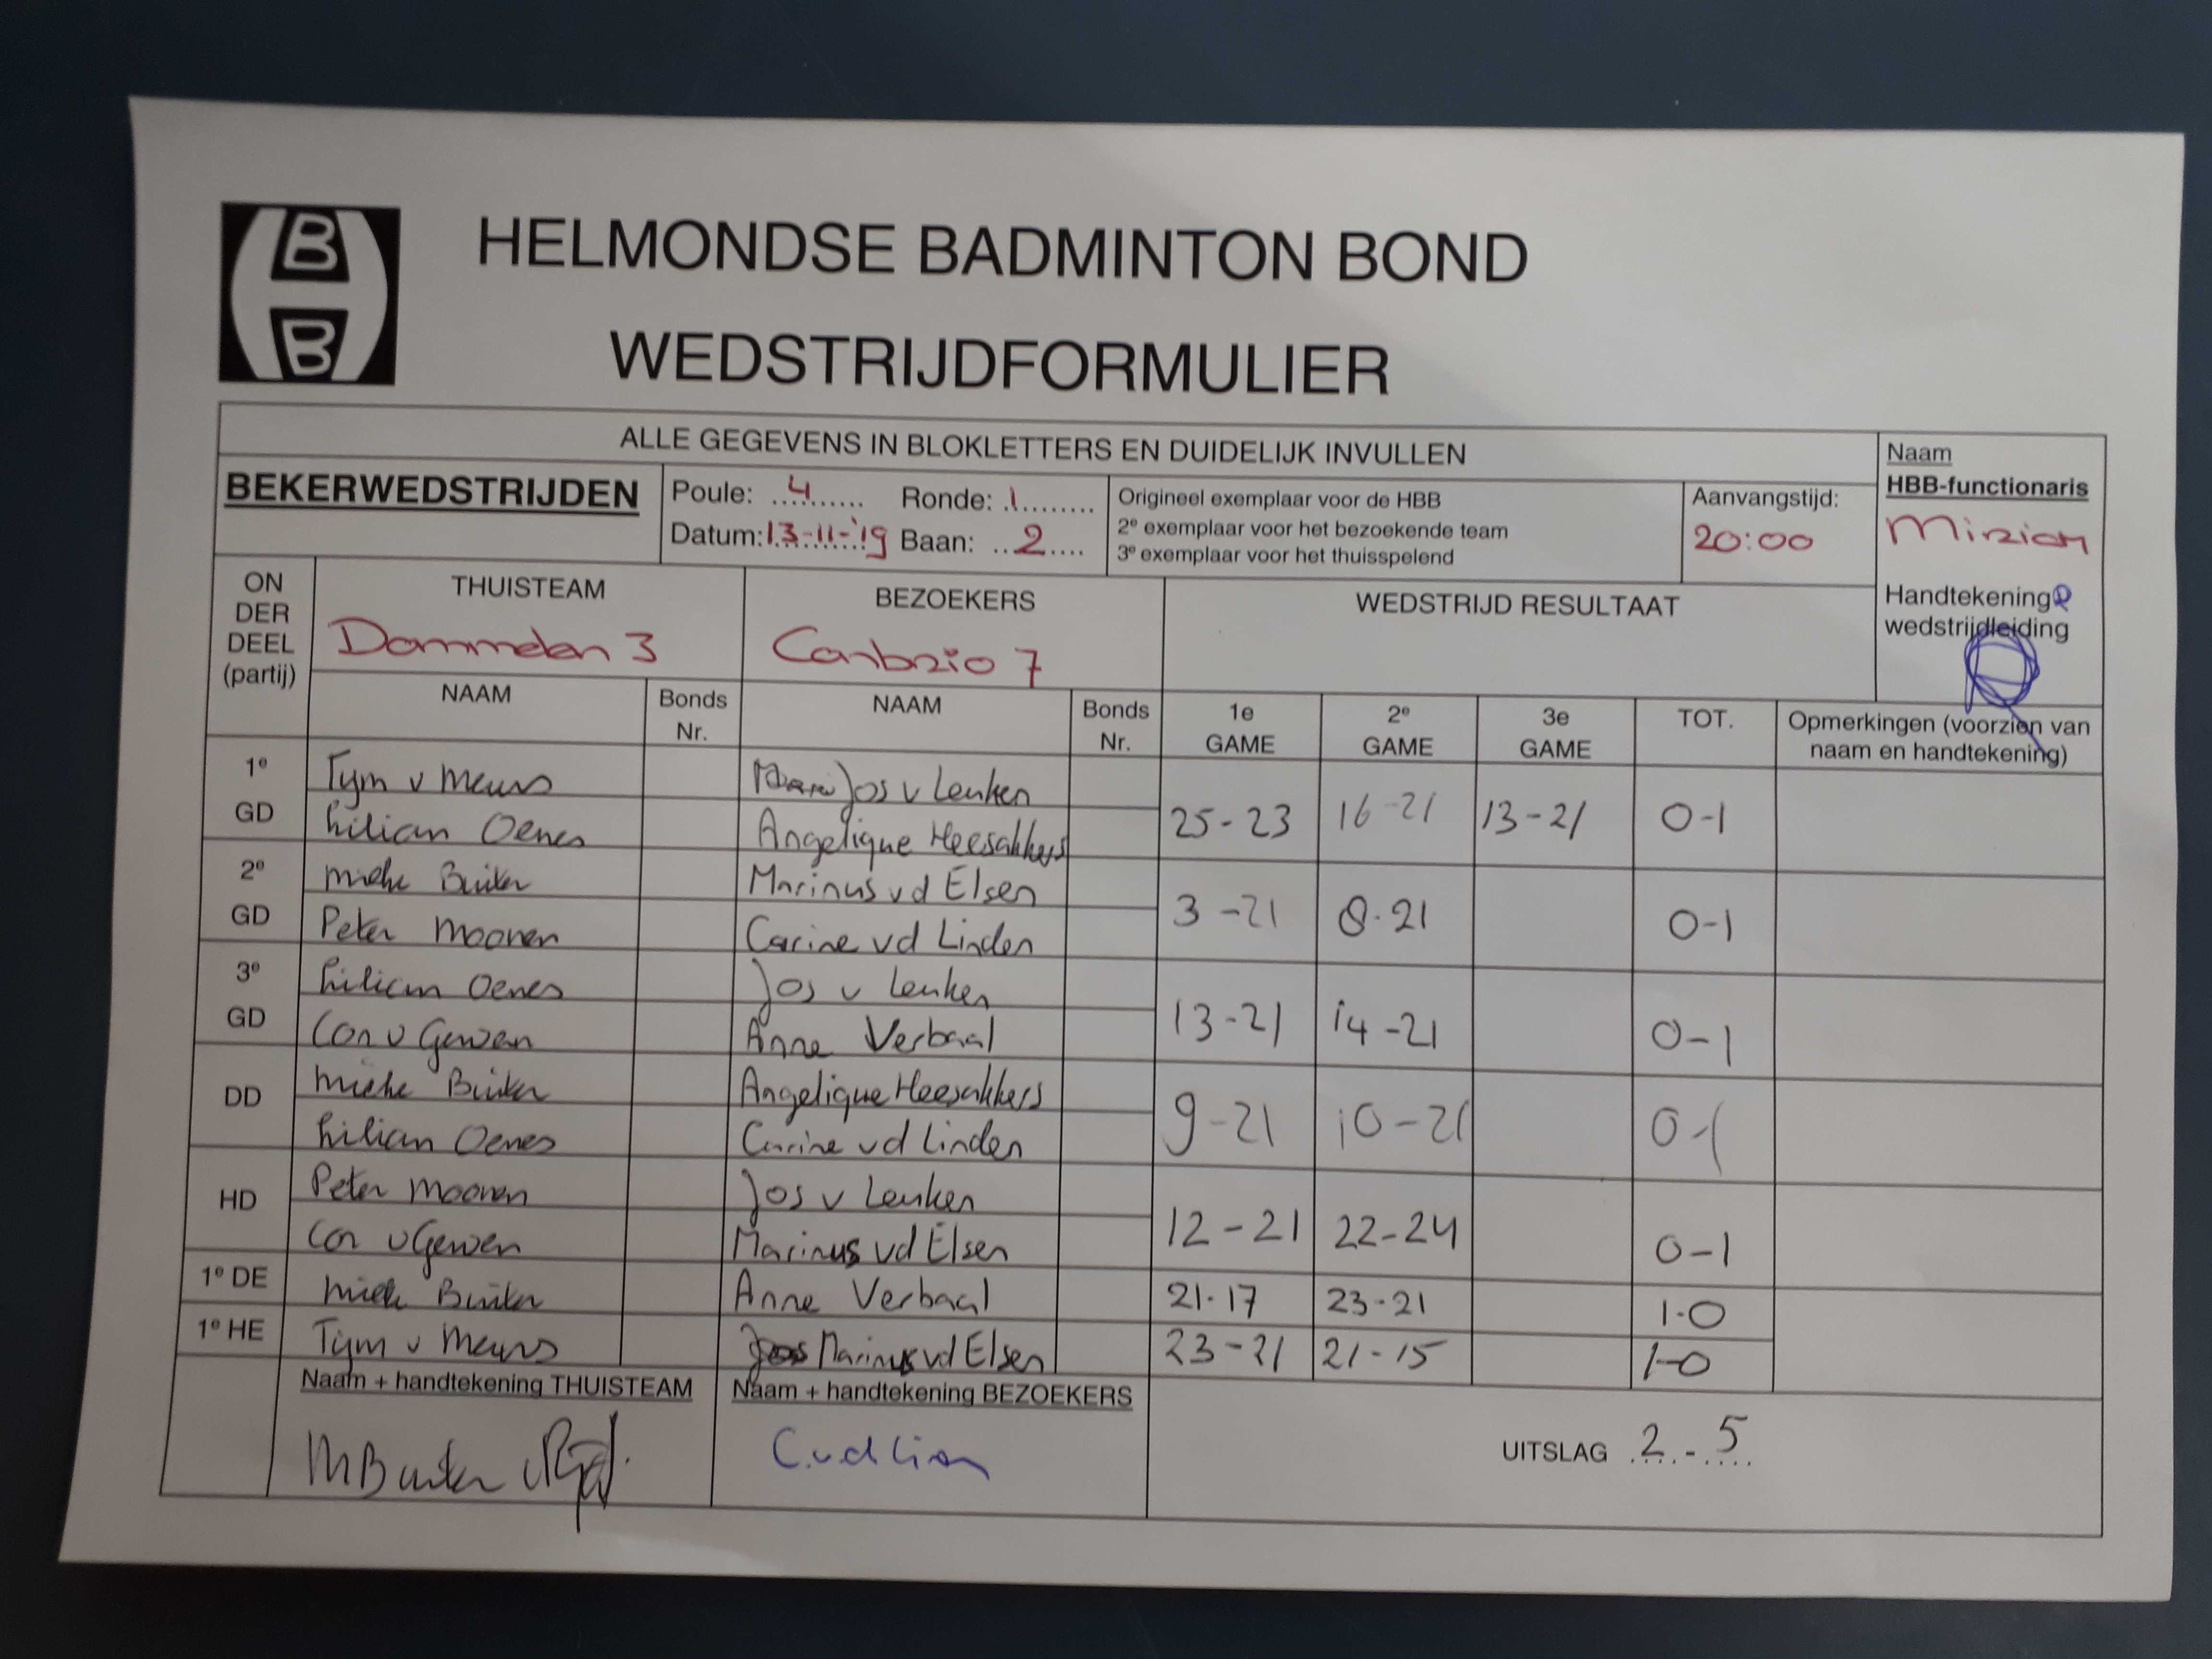 B
B
HELMONDSE BADMINTON BOND
WEDSTRIJDFORMULIER
ALLE GEGEVENS IN BLOKLETTERS EN DUIDELIJK INVULLEN
Naam
HBB-functionaris
Miriam
BEKERWEDSTRIJDEN
Poule: ..4...... Ronde: .1........
Datum:13-11-'19 Baan: ..2....
Origineel exemplaar voor de HBB
2e exemplaar voor het bezoekende team
3e exemplaar voor het thuisspelend
Aanvangstijd:
20:00
Handtekening
wedstrijdleiding
ON
DER
DEEL
(partij)
THUISTEAM
Dommelen 3
BEZOEKERS
Carbrio 7
WEDSTRIJD RESULTAAT
NAAM Bonds Nr. NAAM Bonds Nr. 1e GAME 2e GAME 3e GAME TOT. Opmerkingen (voorzien van naam en handtekening)
1e Tym v Meurs Jos v Leuken
GD Lilian Oenes Angelique Heesakkers 25-23 16-21 13-21 0-1
2e Mieke Buiter Marinus vd Elsen
GD Peter Moonen Carine vd Linden 3-21 8-21 0-1
3e Lilian Oenes Jos v Leuken
GD Cor v Gerwen Anne Verbaal 13-21 14-21 0-1
DD Mieke Buiter Angelique Heesakkers
Lilian Oenes Carine vd Linden 9-21 10-21 0-1
HD Peter Moonen Jos v Leuken
Cor v Gerwen Marinus vd Elsen 12-21 22-24 0-1
1e DE Mieke Buiter Anne Verbaal 21-17 23-21 1-0
1e HE Tym v Meurs Marinus vd Elsen 23-21 21-15 1-0
Naam + handtekening THUISTEAM Naam + handtekening BEZOEKERS
UITSLAG 2 - 5